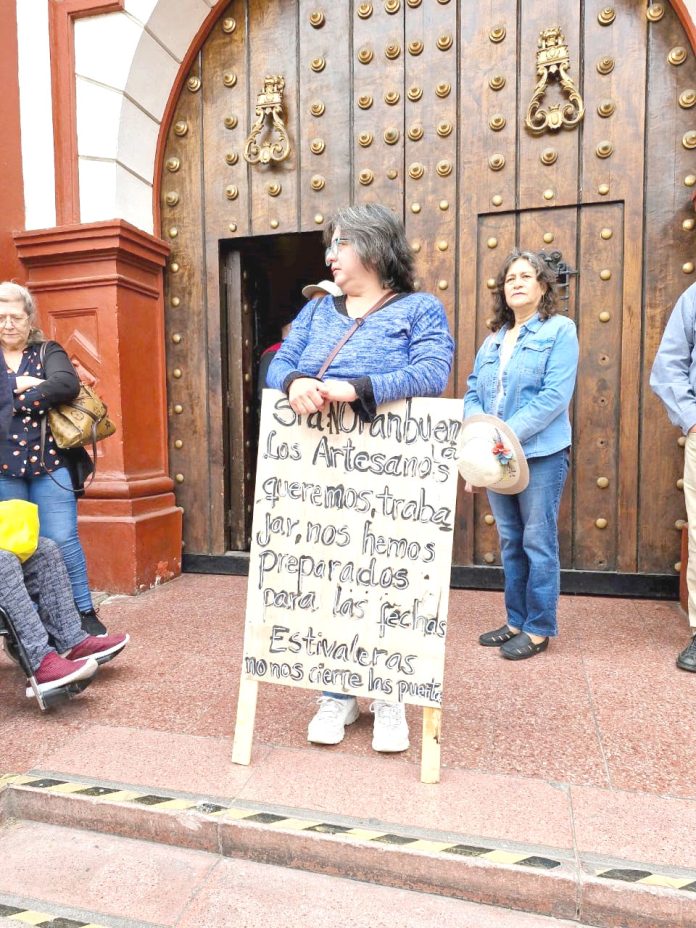 Sra: Noranbuena
Los Artesano's
queremos, traba
jar, nos hemos
preparados
para las fechas
Estivaleras
no nos cierre las puerta